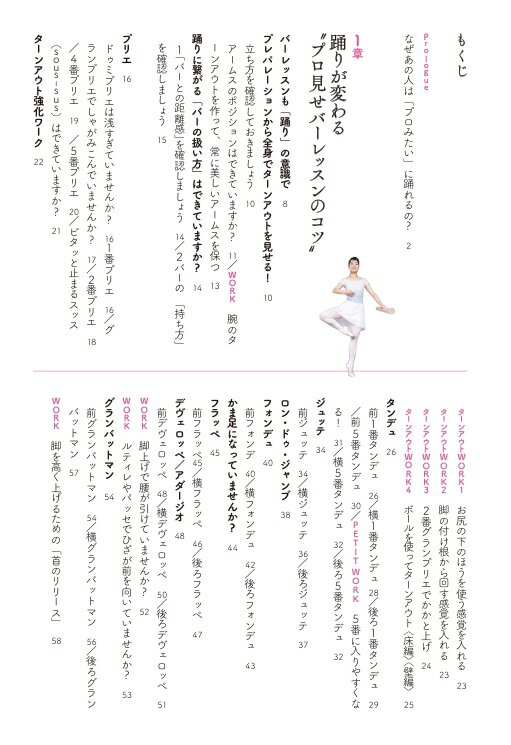 もくじ
Prologue
なぜあの人は「プロみたい」に踊れるの？　2
1章
踊りが変わる
“プロ見せバーレッスンのコツ”
バーレッスンも「踊り」の意識で　8
プレパレーションから全身でターンアウトを見せる！　10
立ち方を確認しておきましょう　10
アームスのポジションはできていますか？　11／WORK　腕のタ
ーンアウトを作って、常に美しいアームスを保つ　13
踊りに繋がる「バーの扱い方」はできていますか？　14
1「バーとの距離感」を確認しましょう　14／2 バーの「持ち方」
を確認しましょう　15
プリエ　16
ドゥミプリエは浅すぎていませんか？　16　1番プリエ　16／グ
ランプリエでしゃがみこんでいませんか？　17／2番プリエ　18
／4番プリエ　19　／5番プリエ　20／ピタッと止まるスッス
（sousisus）はできていますか？　21
ターンアウト強化ワーク　22
ターンアウトWORK1　お尻の下のほうを使う感覚を入れる　23
ターンアウトWORK2　脚の付け根から回す感覚を入れる　23
ターンアウトWORK3　2番グランプリエでかかと上げ　24
ターンアウトWORK4　ボールを使ってターンアウト〈床編〉〈壁編〉　25
タンデュ　26
前1番タンデュ　26／横1番タンデュ　28／後ろ1番タンデュ　29
／前5番タンデュ　30／PETIT WORK　5番に入りやすくな
る！　31／横5番タンデュ　32／後ろ5番タンデュ　32
ジュッテ　34
前ジュッテ　34／横ジュッテ　36／後ろジュッテ　37
ロン・ドゥ・ジャンブ　38
フォンデュ　40
前フォンデュ　40／横フォンデュ　42／後ろフォンデュ　43
かま足になっていませんか？　44
フラッペ　45
前フラッペ　45／横フラッペ　46／後ろフラッペ　47
デヴェロッペ／アダージオ　48
前デヴェロッペ　48／横デヴェロッペ　50／後ろデヴェロッペ　51
WORK　脚上げで腰が引けていませんか？　52
WORK　ルティレやパッセでひざが前を向いていませんか？　53
グランバットマン　54
前グランバットマン　54／横グランバットマン　56／後ろグラン
バットマン　57
WORK　脚を高く上げるための「首のリリース」　58